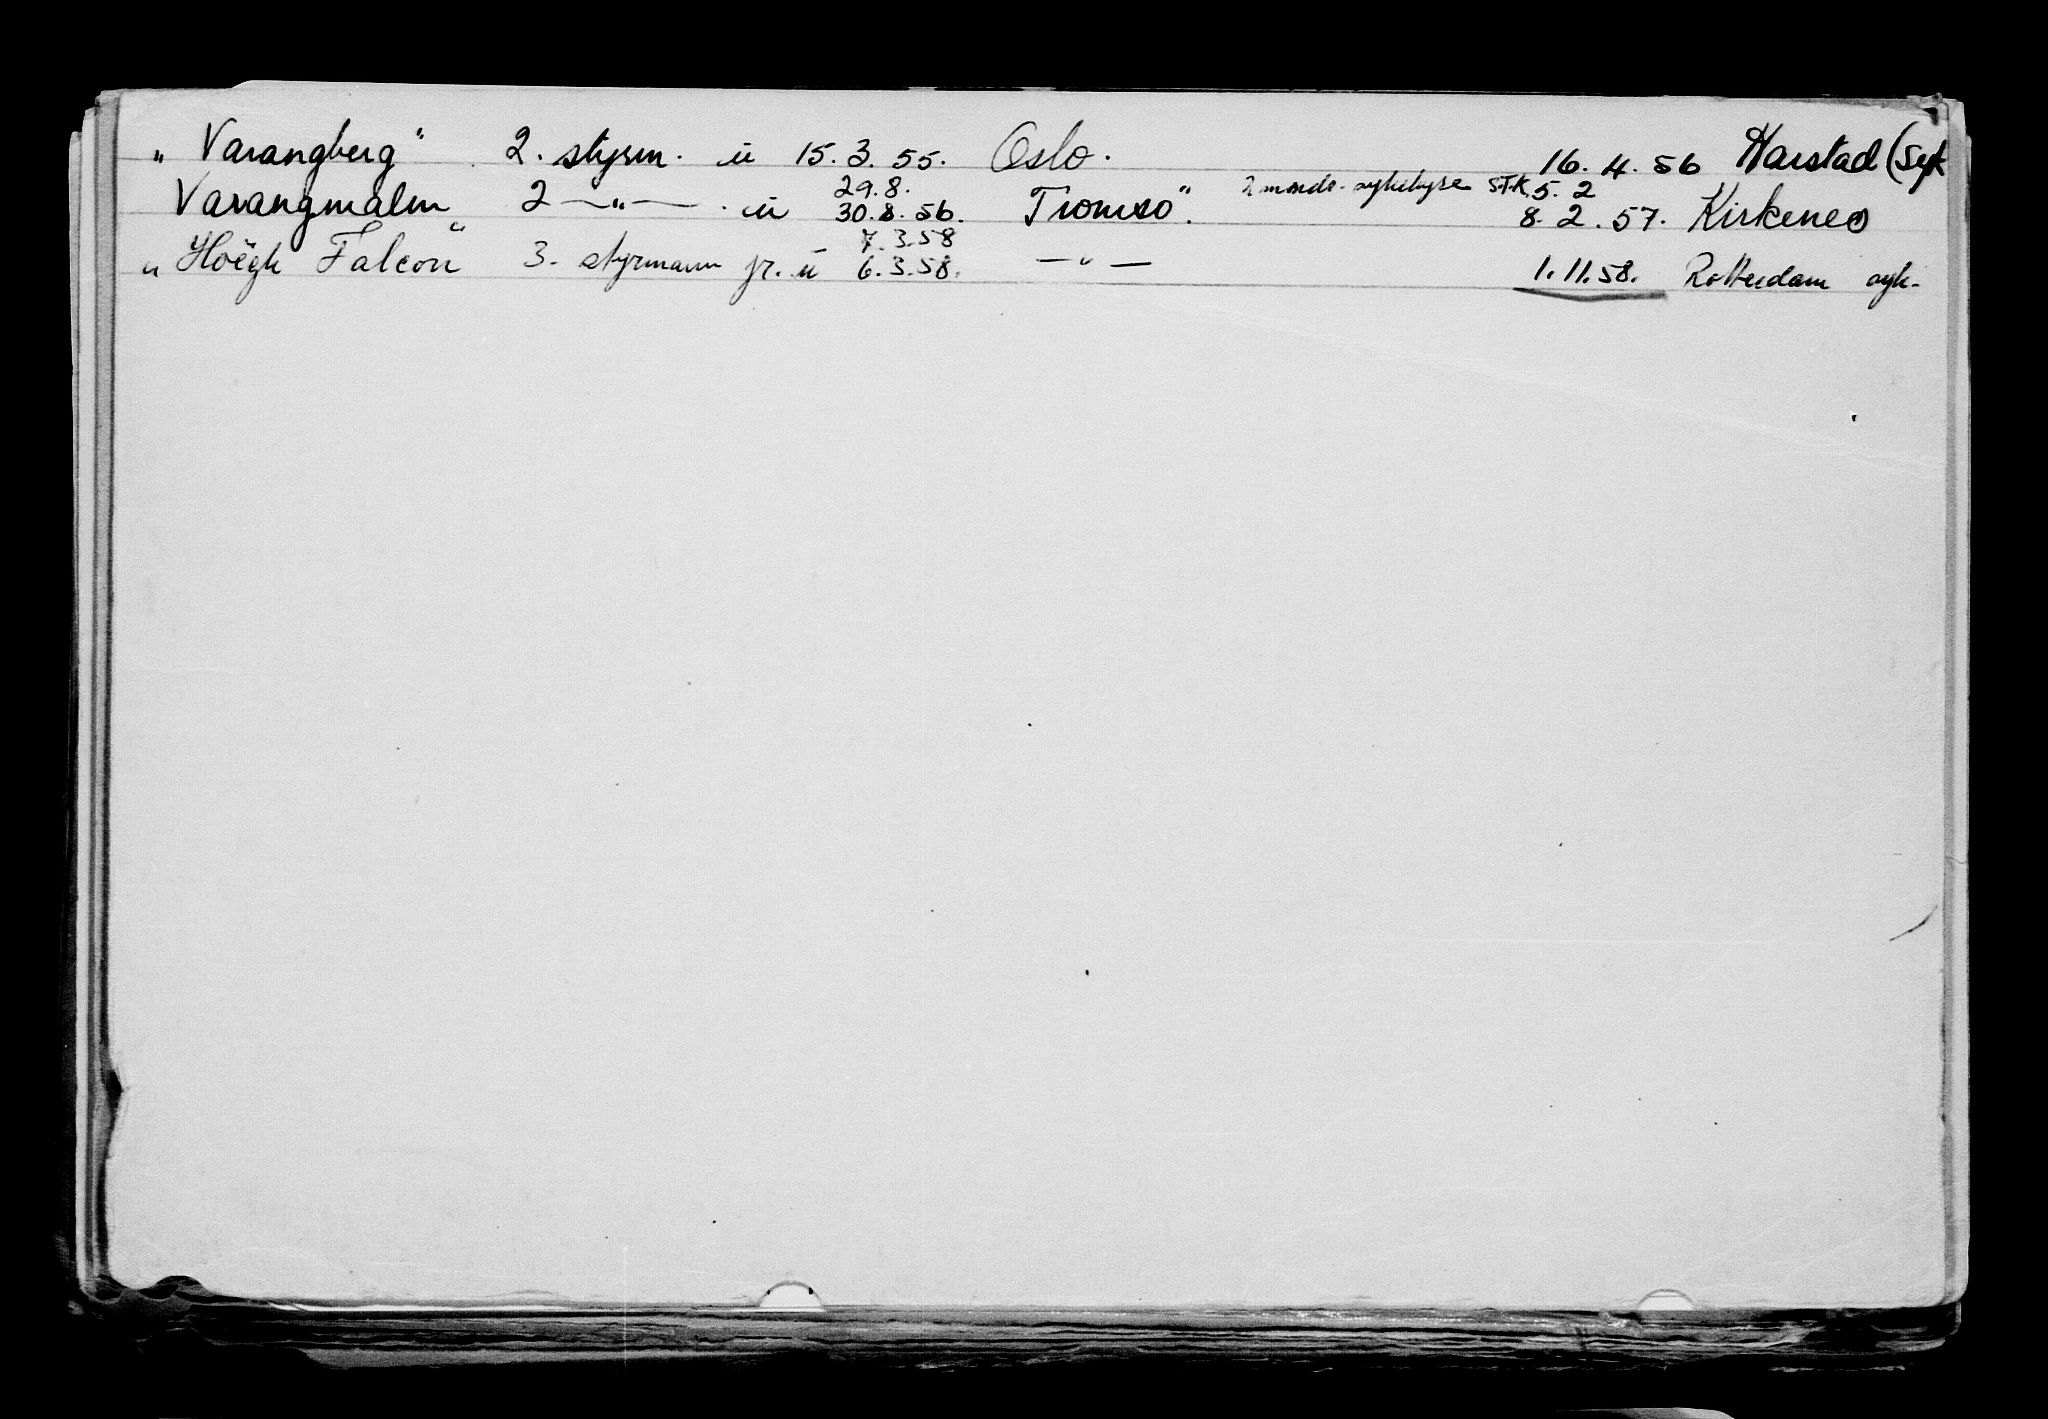 „Varangberg" 2. styrm. u 15.3.55. Oslo. 16.4.56 Harstad (syk
29.8. 2 månds. sykehyre S.T.K. 5.2
Varangmalm" 2 —"— . u 30.8.56. Tromsø". 8.2.57. Kirkenes
7.3.58
„Höegh Falcon" 3. styrmann jr. u 6.3.58. —"— 1.11.58. Rotterdam syk.